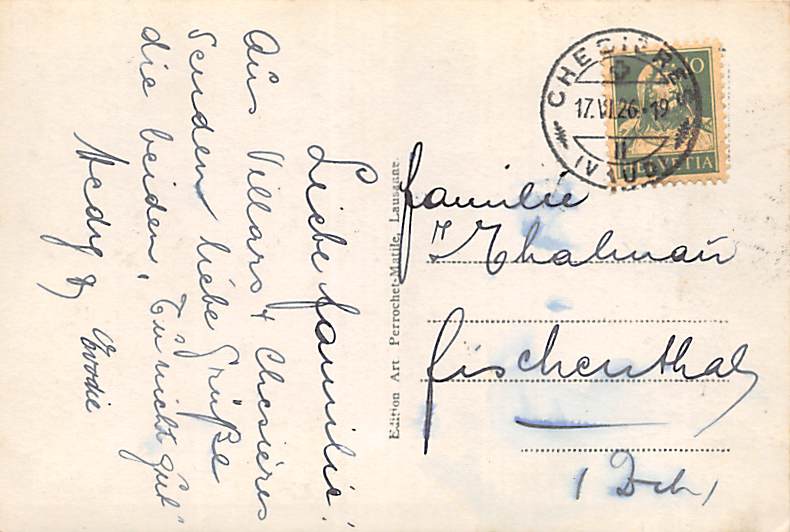 Liebe Familie!
Aus Villars & Chesières
senden liebe Grüße
die beiden,
Hedy &
Edition Art Perrochet-Matile, Lausanne.
CHESIERES
17.VI.26-19
II
(VAUD)
10
HELVETIA
Familie
Thalman
Fischenthal
(Zch)